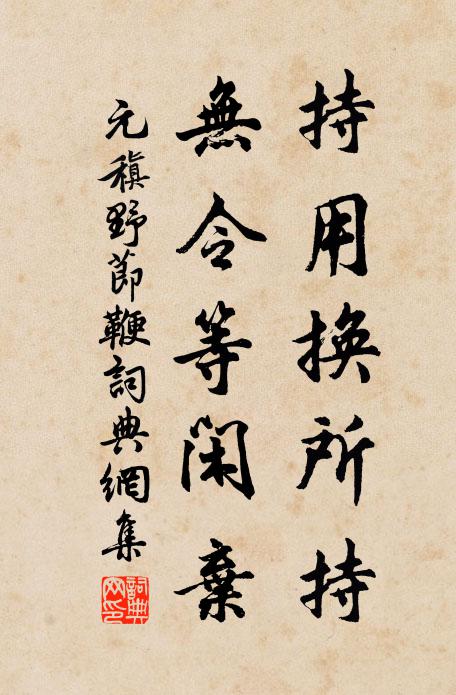 持用換所持
無令等閑棄
元稹野節鞭詞典網集
詞典
网印